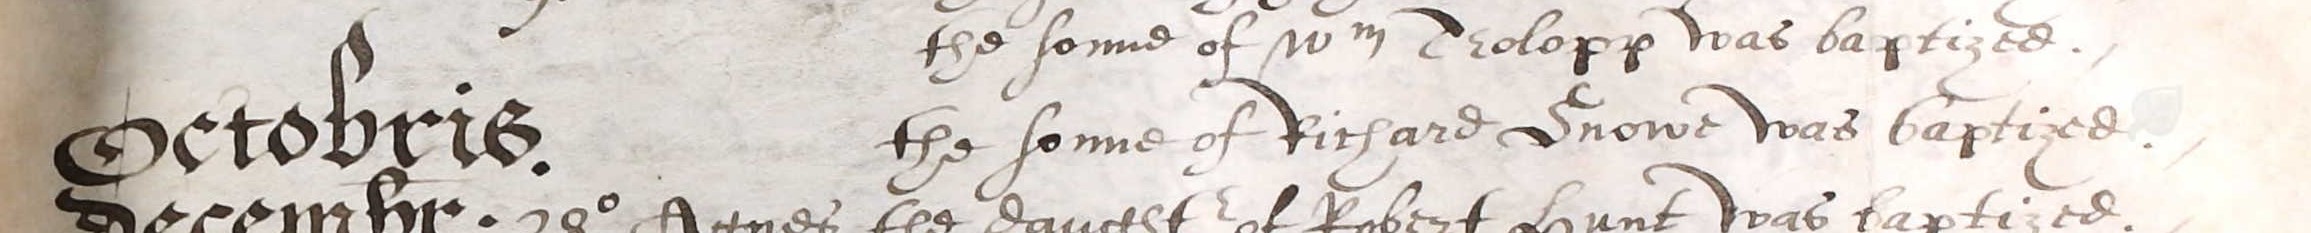 the sonne of Wm Trolopp was baptized.
Octobris. the sonne of Richard Snowe was baptized.
decembr. 28o Agnes the daught r of Robert Hunt was baptized.